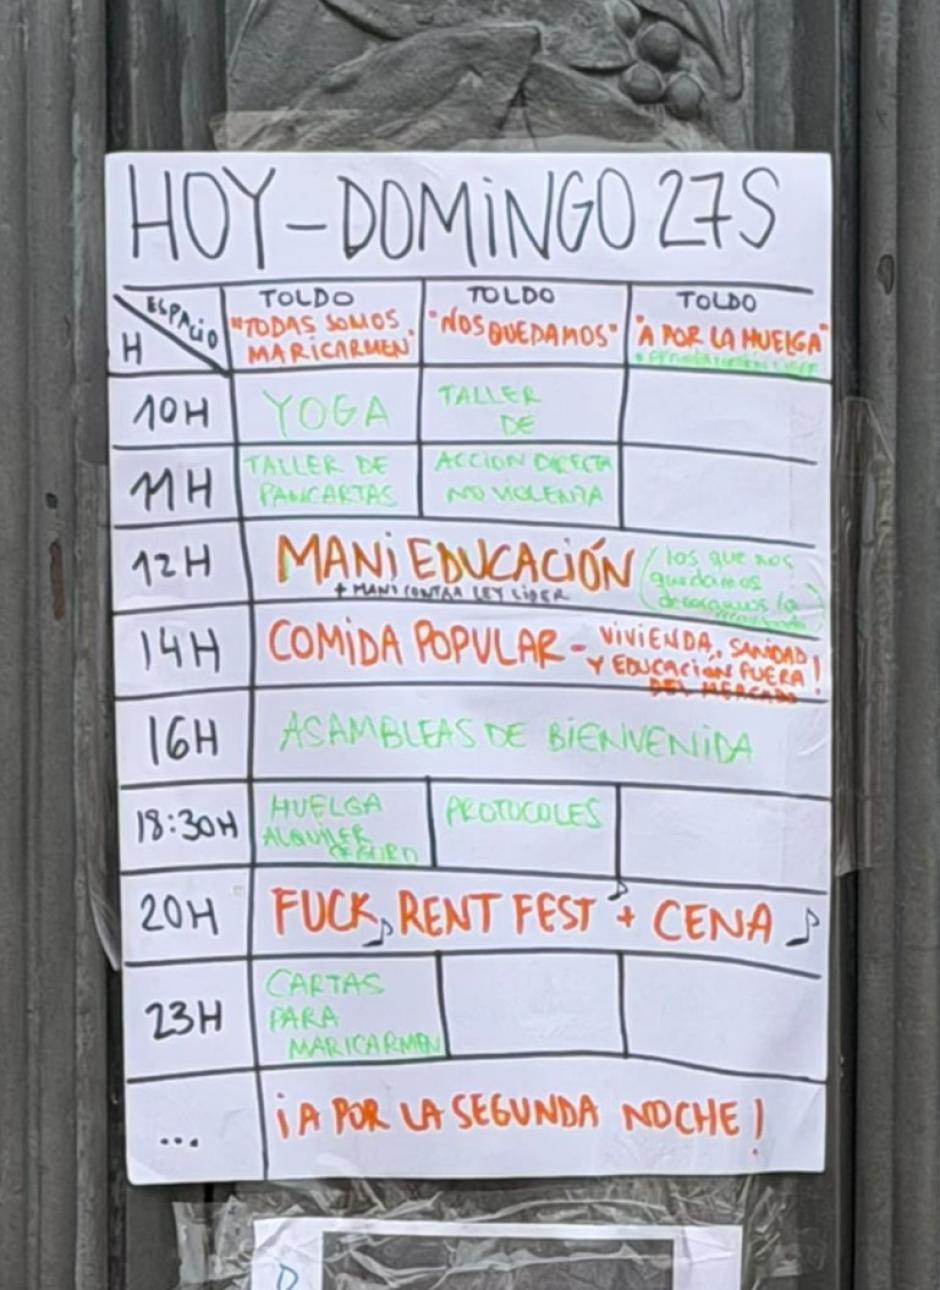 HOY - DOMINGO 27S
ESPACIO
H
TOLDO
"TODAS SOMOS
MARICARMEN"
TOLDO
"NOS QUEDAMOS"
TOLDO
"A POR LA HUELGA"
10H
YOGA
TALLER
DE
11H
TALLER DE
PANCARTAS
ACCION DIRECTA
NO VIOLENTA
12H
MANI EDUCACIÓN
+ MANI CONTRA LEY LIDER
(los que nos
quedamos
decoramos la
14H
COMIDA POPULAR - VIVIENDA, SANIDAD
Y EDUCACIÓN FUERA!
DEL MERCADO
16H
ASAMBLEAS DE BIENVENIDA
18:30H
HUELGA
ALQUILER
PROTOCOLES
20H
FUCK RENT FEST + CENA
23H
CARTAS
PARA
MARICARMEN
...
¡A POR LA SEGUNDA NOCHE!